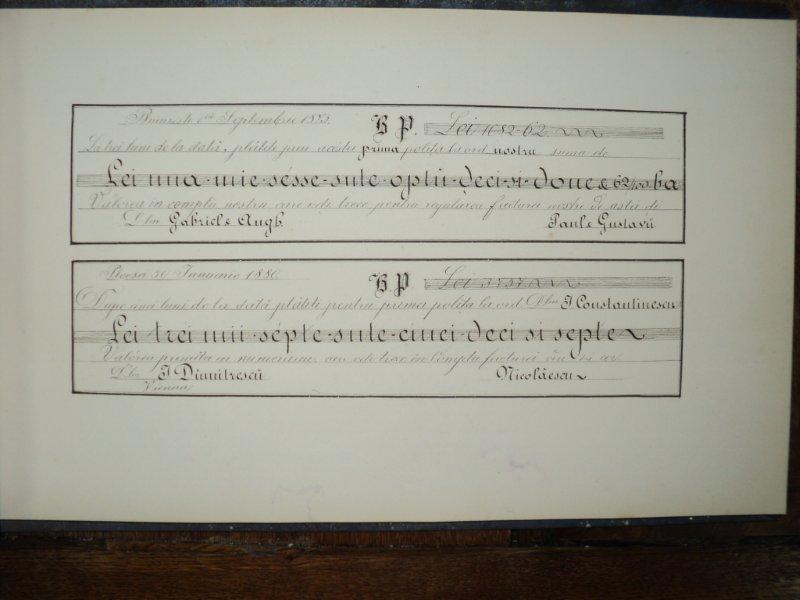 Septembrie 1883.
B P. Lei 1682-62
de la dată, plătiți prin acésta prima polița la ord. nostru suma de
Lei una-mie-sésse-sute-optú-deci-si-doue & 62/100 ba
Valórea in comptu nostru care veti trece pentru regularea factura nostre de astă di
D-lui Gabriel & Augh. Paul & Gustavú
30 Ianuarie 1886.
B. P. Lei
Dupe luni de la dată plătiti pentru prima polița la ord. D-lui I Constantinescu
Lei trei mii-sépte-sute-cinci-deci si septe
Valórea primita in numerariu, care veti trece in comptu facturei
D-lui I Dimitrescú Nicolăescu
Vienna